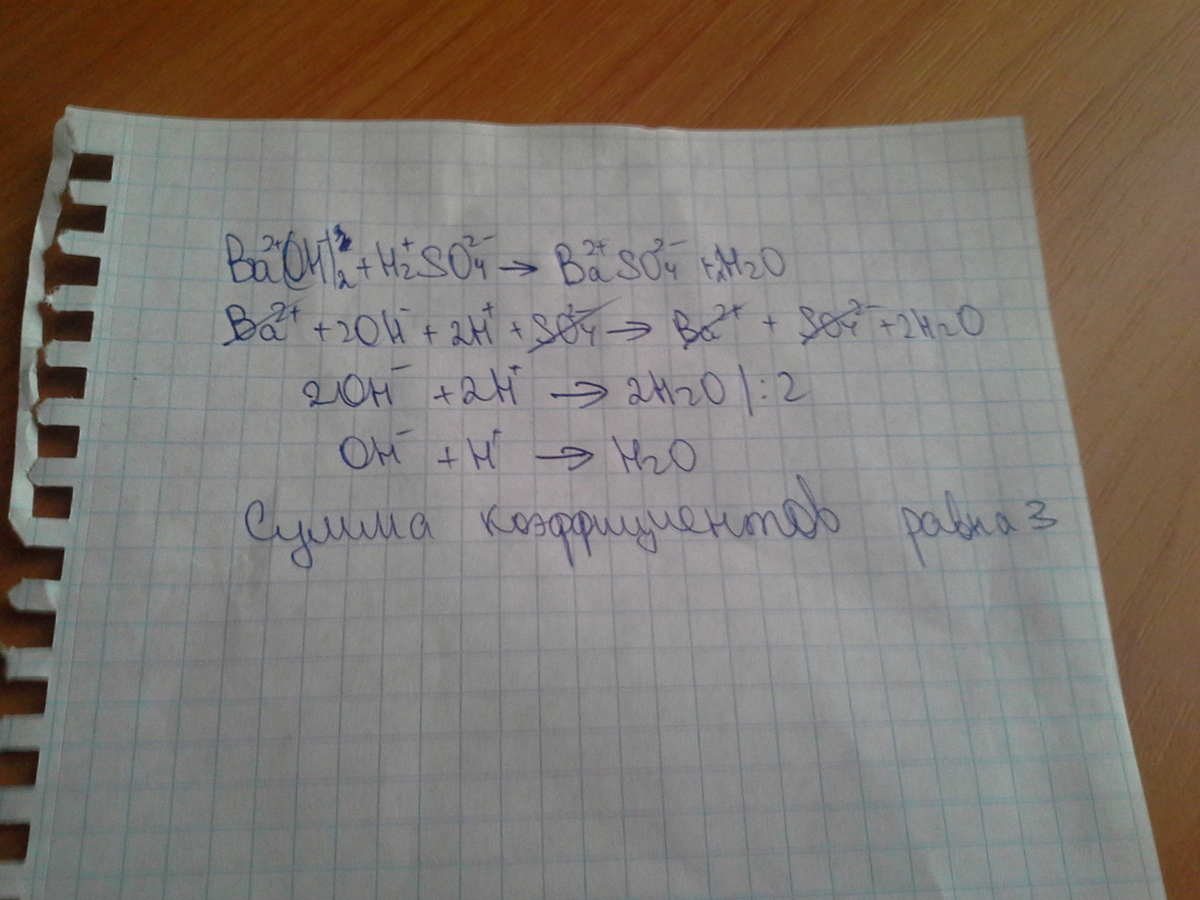 Ba²⁺(OH⁻)₂ + H₂⁺SO₄²⁻ → Ba²⁺SO₄²⁻ + 2H₂O
Ba²⁺ + 2OH⁻ + 2H⁺ + SO₄²⁻ → Ba²⁺ + SO₄²⁻ + 2H₂O
2OH⁻ + 2H⁺ → 2H₂O |:2
OH⁻ + H⁺ → H₂O
Сумма коэффициентов равна 3